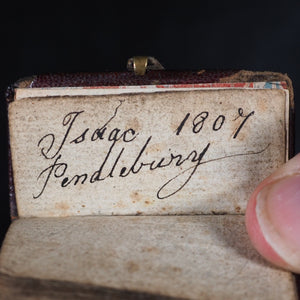 Isaac 1807
Pendlebury